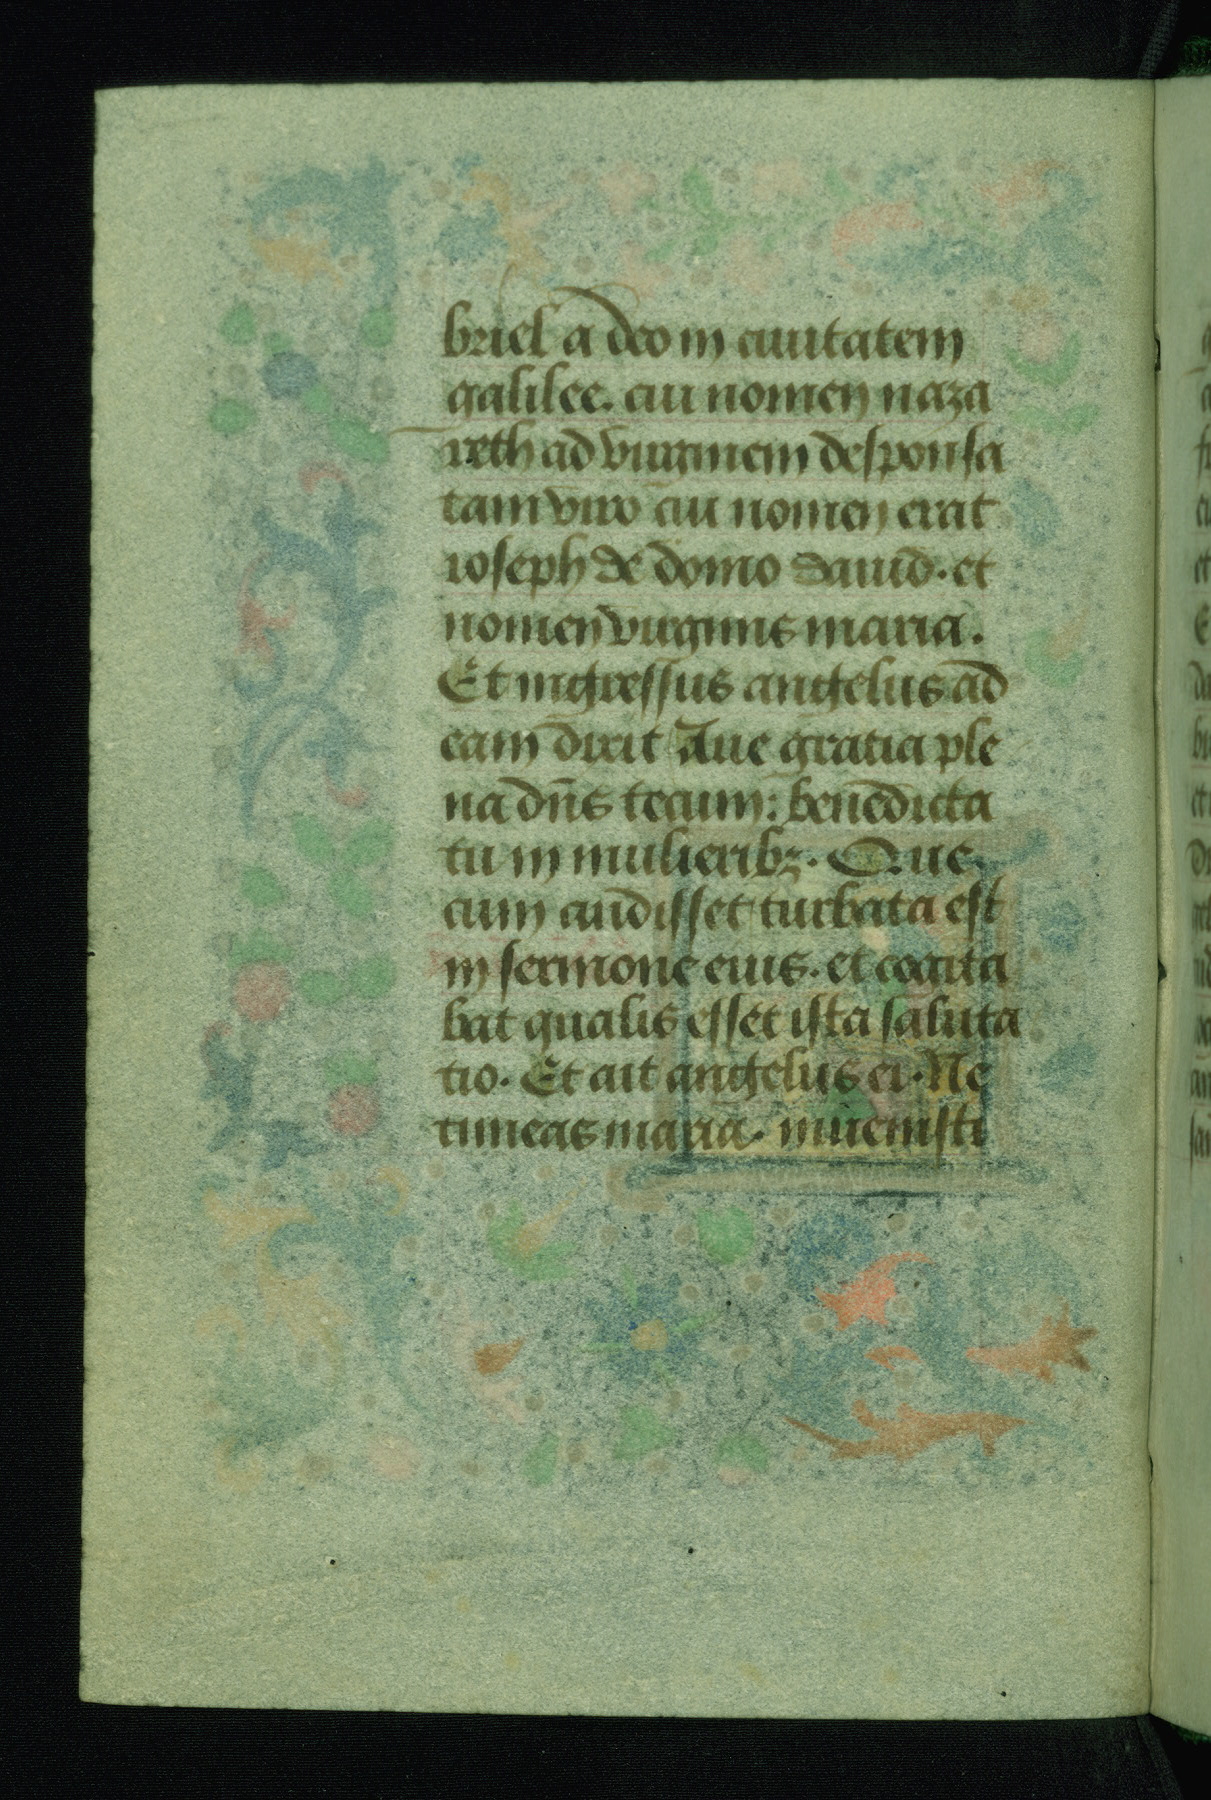 briel a deo in ciuitatem
galilee. cui nomen naza
reth ad virginem desponsa
tam viro cui nomen erat
ioseph de domo dauid. et
nomen virginis maria.
Et ingressus angelus ad
eam dixit Aue gratia ple
na dn̄s tecum: benedicta
tu in mulieribꝫ. Que
cum audisset turbata est
in sermone eius. et cogita
bat qualis esset ista saluta
tio. Et ait angelus ei. Ne
timeas maria. inuenisti